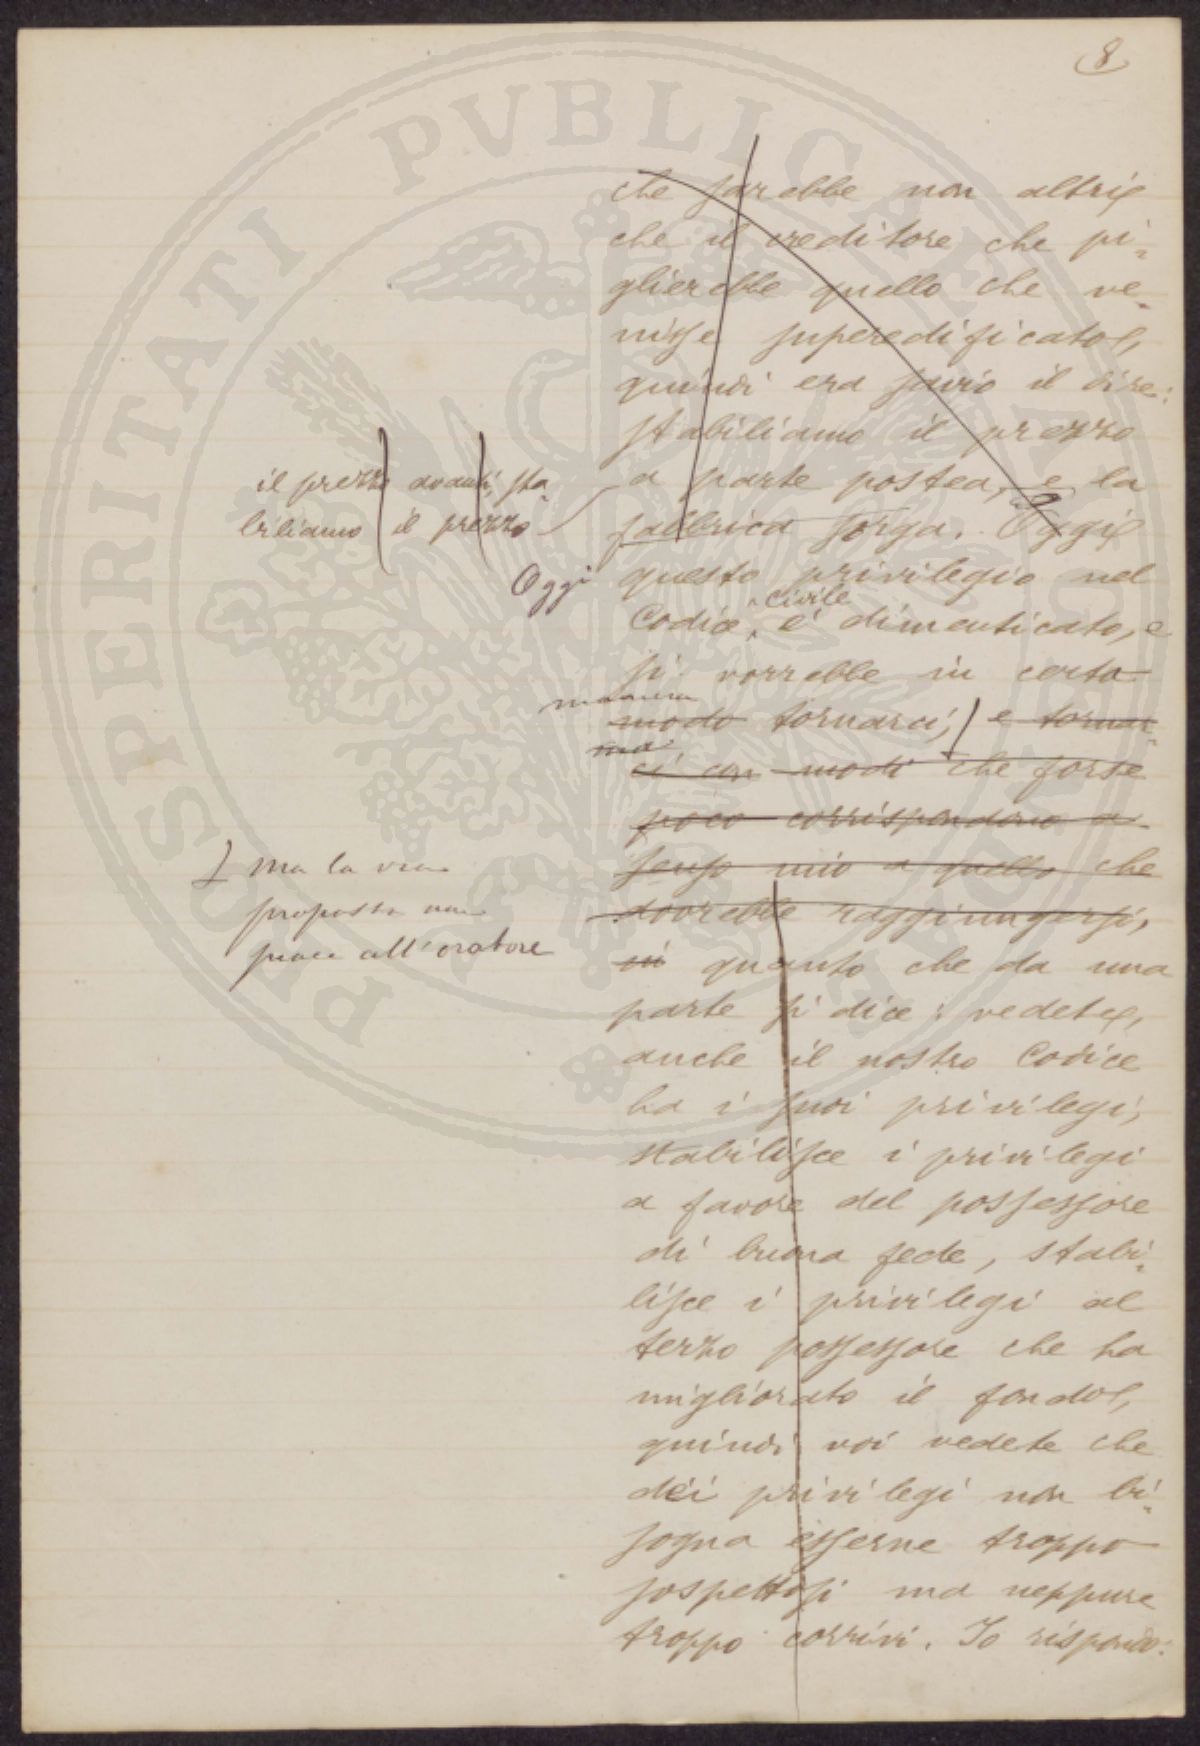 8
che sarebbe non altri
che il creditore che pi=
glierebbe quello che ve=
nisse superedificato,
quindi era savio il dire:
stabiliamo il prezzo
a parte postea, e la
fabbrica sorga. Oggi
il prezzo avanti, sta
biliamo il prezzo
Oggi
questo privilegio nel
civile
Codice, è dimenticato, e
si vorrebbe in certa
maniera
modo tornarci, e tornar=
ma
ci con modi che forse
poco corrispondono a
senso mio a quello che
dovrebbe raggiungersi,
ma la via
proposta non
piace all'oratore
in quanto che da una
parte si dice: vedete,
anche il nostro Codice
ha i suoi privilegi,
stabilisce i privilegi
a favore del possessore
di buona fede, stabi=
lisce i privilegi al
terzo possessore che ha
migliorato il fondo,
quindi voi vedete che
dei privilegi non bi=
sogna esserne troppo
sospettosi ma neppure
troppo corrivi. Io rispondo:
PROSPERITATI PVBLICAE